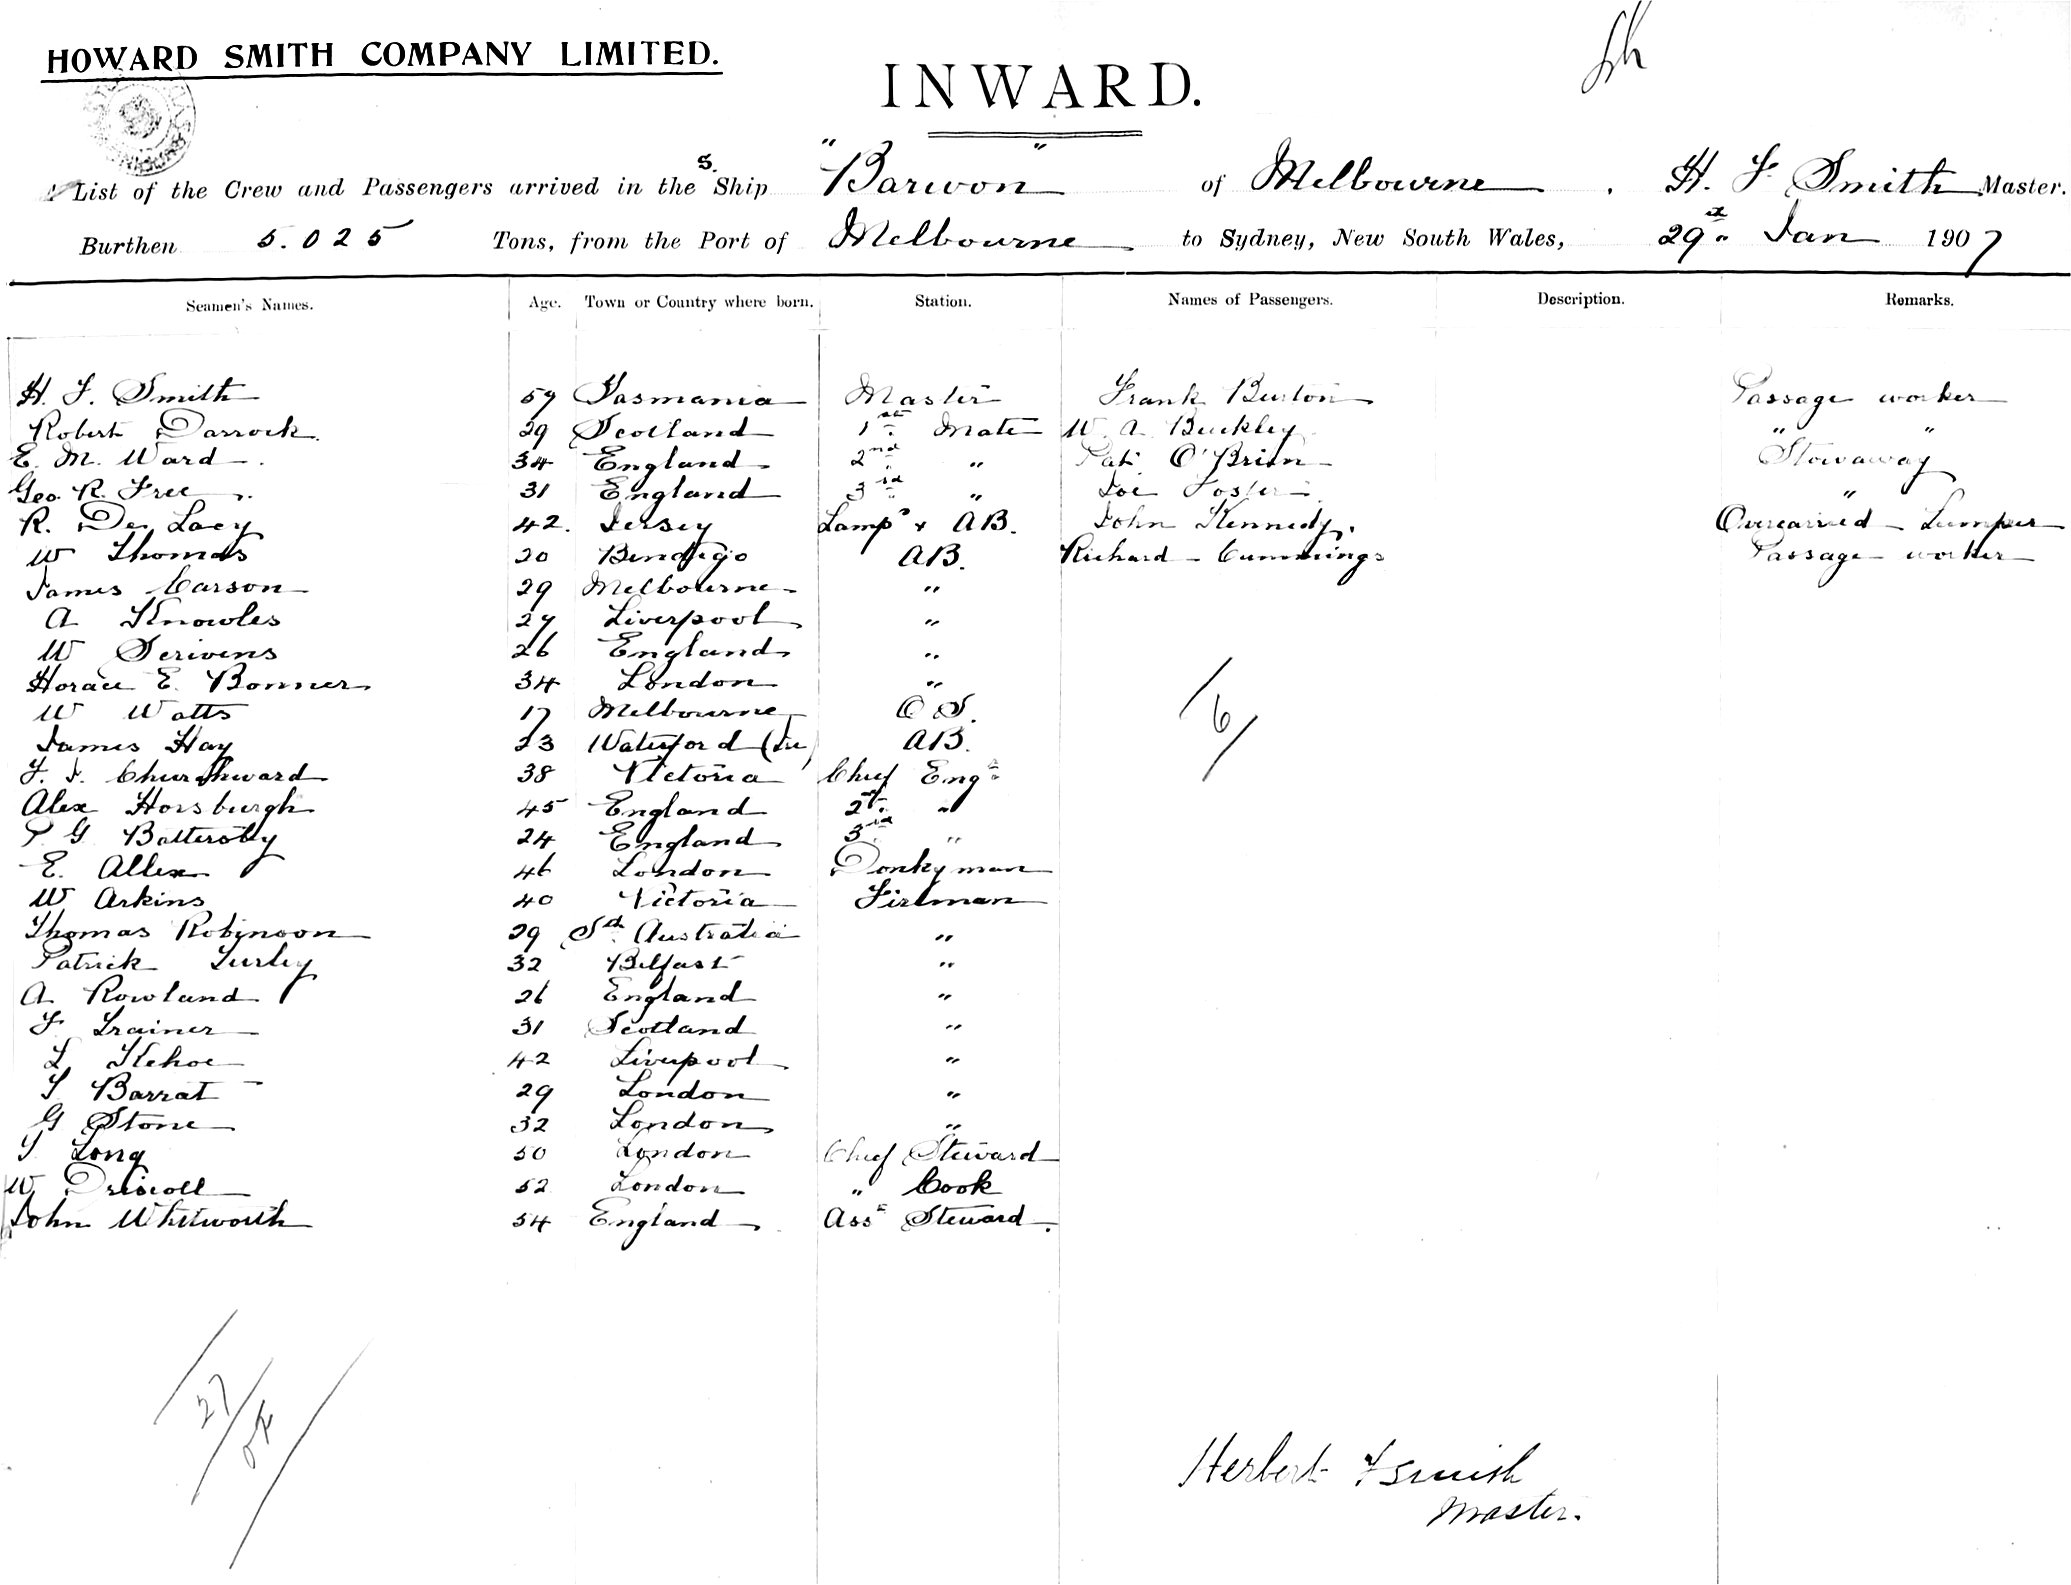 HOWARD SMITH COMPANY LIMITED.
INWARD.
A List of the Crew and Passengers arrived in the S. Ship "Barwon" of Melbourne, H. F. Smith Master.
Burthen 5.025 Tons, from the Port of Melbourne to Sydney, New South Wales, 29th Jan 1907
Seamen's Names. Age. Town or Country where born. Station. Names of Passengers. Description. Remarks.
H. F. Smith 59 Tasmania Master Frank Burton Passage worker
Robert Darrock. 29 Scotland 1st Mate W. A. Buckley " "
E. M. Ward. 34 England 2nd " Pat O'Brien Stowaway
Geo. R. Free. 31 England 3rd " Joe Foster "
R. De Lacy 42. Jersey Lamps & AB. John Kennedy. Overcarried Lumper
W Thomas 20 Bendigo AB. Richard Cummings Passage worker
James Carson 29 Melbourne "
A Knowles 27 Liverpool "
W Scrivens 26 England "
Horace E. Bonner 34 London "
W Watts 17 Melbourne O S.
James Hay 23 Waterford (Ire) AB.
F. F. Churchward 38 Victoria Chief Engr
Alex Horsburgh 45 England 2nd "
P G Battersby 24 England 3rd "
E. Allen 46 London Donkyman
W Arkins 40 Victoria Fireman
Thomas Robinson 29 Sth Australia "
Patrick Turley 32 Belfast "
A Rowland 26 England "
F Trainer 31 Scotland "
L Kehoe 42 Liverpool "
T Barrat 29 London "
G Stone 32 London "
T Long 50 London Chief Steward
W Driscoll 52 London " Cook
John Whitworth 54 England Asst Steward.
6
27
Herbert F Smith
Master.